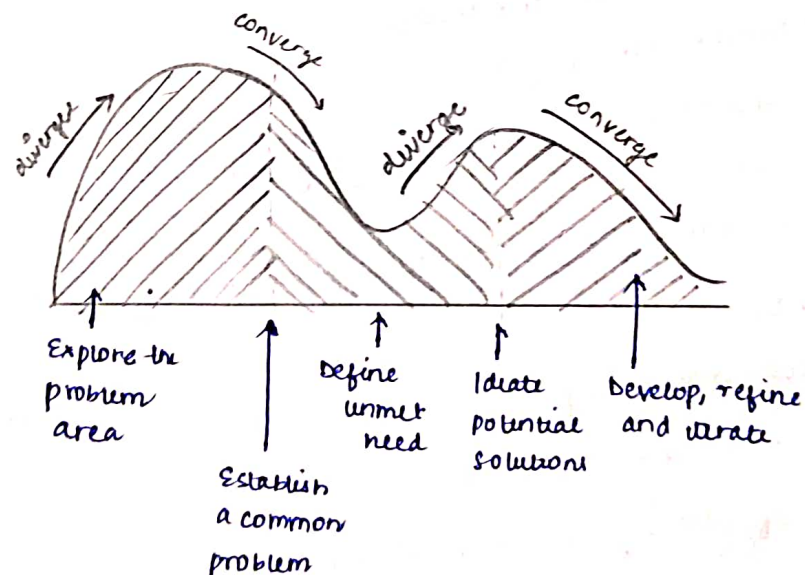 diverge
converge
diverge
converge
Explore the
problem
area
Establish
a common
problem
Define
unmet
need
Ideate
potential
solutions
Develop, refine
and iterate